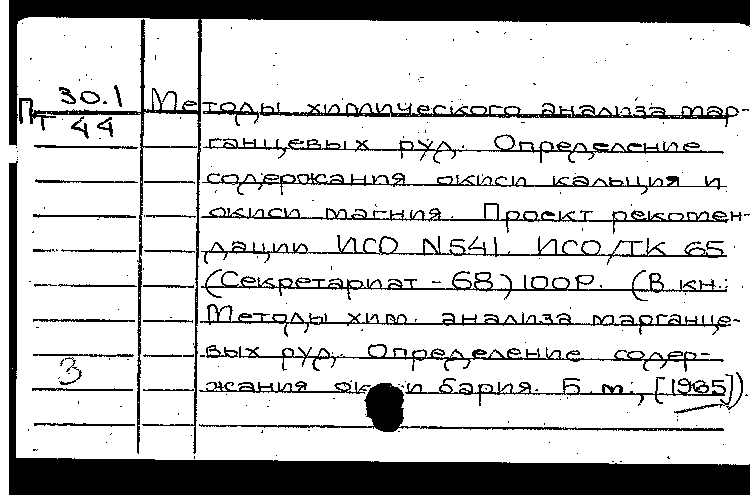 Пт 30.1
44
Методы химического анализа мар-
ганцевых руд. Определение
содержания окиси кальция и
окиси магния. Проект рекомен-
дации ИСО N541. ИСО/ТК 65
(Секретариат - 68) 100Р. (В кн.:
Методы хим. анализа марганце-
вых руд. Определение содер-
жания окиси бария. Б. м., [1965]).
3